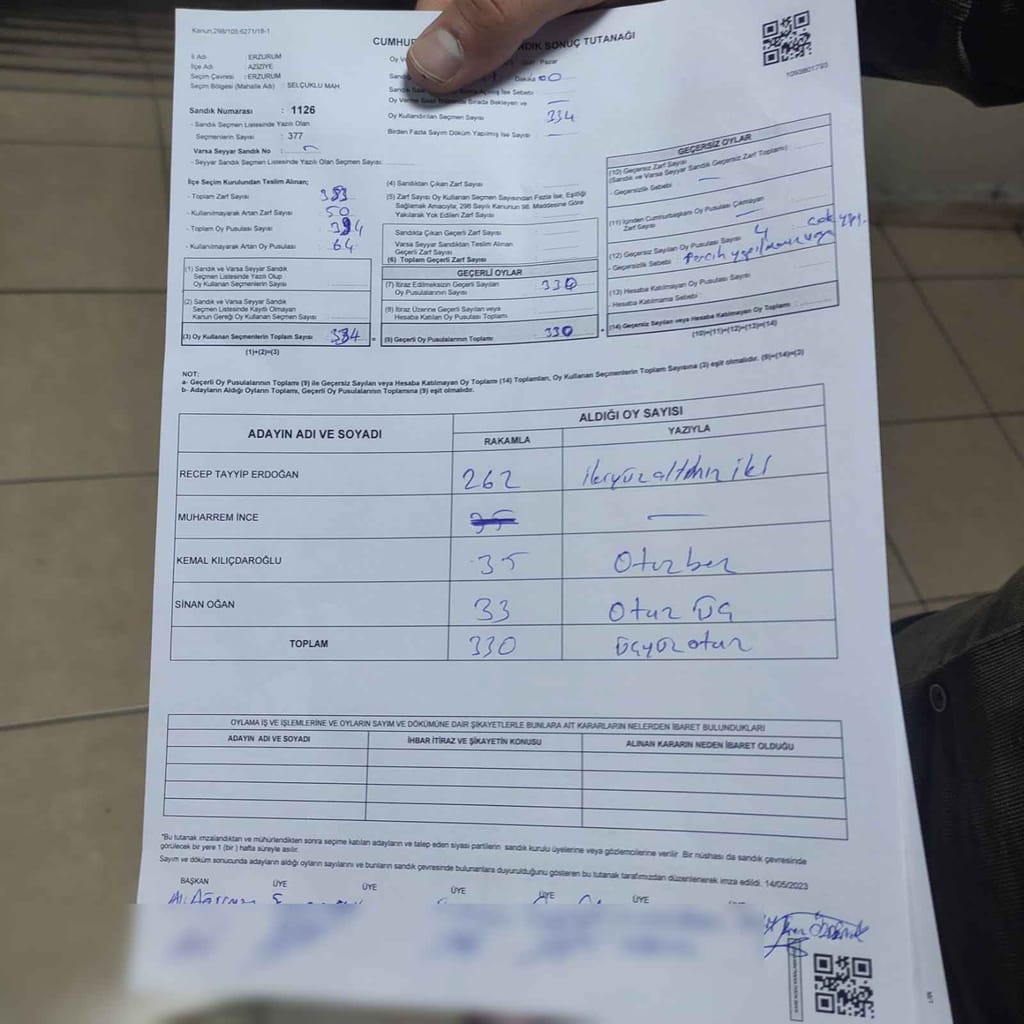 Kanun,298/105-6271/18-1
CUMHUR NDIK SONUÇ TUTANAĞI
1093801793
İl Adı : ERZURUM
İlçe Adı : AZİZİYE
Seçim Çevresi : ERZURUM
Seçim Bölgesi (Mahalle Adı) : SELÇUKLU MAH
Sandık Numarası : 1126
- Sandık Seçmen Listesinde Yazılı Olan
Seçmenlerin Sayısı : 377
Varsa Seyyar Sandık No :
- Seyyar Sandık Seçmen Listesinde Yazılı Olan Seçmen Sayısı
Oy V Pazar
Sandığ Dakika 00
Sandık Açılmış İse Sebebi
Oy Verme Sırada Bekleyen ve
Oy Kullandırılan Seçmen Sayısı 334
Birden Fazla Sayım Döküm Yapılmış İse Sebebi —
İlçe Seçim Kurulundan Teslim Alınan;
- Toplam Zarf Sayısı 383
- Kullanılmayarak Artan Zarf Sayısı 50
- Toplam Oy Pusulası Sayısı
- Kullanılmayarak Artan Oy Pusulası 64
(1) Sandık ve Varsa Seyyar Sandık
Seçmen Listesinde Yazılı Olup
Oy Kullanan Seçmenlerin Sayısı
(2) Sandık ve Varsa Seyyar Sandık
Seçmen Listesinde Kayıtlı Olmayan
Kanun Gereği Oy Kullanan Seçmen Sayısı
(3) Oy Kullanan Seçmenlerin Toplam Sayısı 334
(1)+(2)=(3)
(4) Sandıktan Çıkan Zarf Sayısı
(5) Zarf Sayısı Oy Kullanan Seçmen Sayısından Fazla İse, Eşitliği
Sağlamak Amacıyla, 298 Sayılı Kanunun 98. Maddesine Göre
Yakılarak Yok Edilen Zarf Sayısı
Sandıkta Çıkan Geçerli Zarf Sayısı
Varsa Seyyar Sandıktan Teslim Alınan
Geçerli Zarf Sayısı
(6) Toplam Geçerli Zarf Sayısı
GEÇERLİ OYLAR
(7) İtiraz Edilmeksizin Geçerli Sayılan
Oy Pusulalarının Sayısı 330
(8) İtiraz Üzerine Geçerli Sayılan veya
Hesaba Katılan Oy Pusulası Toplamı
= (9) Geçerli Oy Pusulalarının Toplamı 330
GEÇERSİZ OYLAR
(10) Geçersiz Zarf Sayısı
(Sandık ve Varsa Seyyar Sandık Geçersiz Zarf Toplamı)
- Geçersizlik Sebebi —
(11) İçinden Cumhurbaşkanı Oy Pusulası Çıkmayan
Zarf Sayısı —
(12) Geçersiz Sayılan Oy Pusulası Sayısı 4
- Geçersizlik Sebebi
(13) Hesaba Katılmayan Oy Pusulası Sayısı
- Hesaba Katılmama Sebebi
+ (14) Geçersiz Sayılan veya Hesaba Katılmayan Oy Toplamı
(10)+(11)+(12)+(13)=(14)
NOT:
a- Geçerli Oy Pusulalarının Toplamı (9) ile Geçersiz Sayılan veya Hesaba Katılmayan Oy Toplamı (14) Toplamları, Oy Kullanan Seçmenlerin Toplam Sayısına (3) eşit olmalıdır. (9)+(14)=(3)
b- Adayların Aldığı Oyların Toplamı, Geçerli Oy Pusulalarının Toplamına (9) eşit olmalıdır.
ADAYIN ADI VE SOYADI ALDIĞI OY SAYISI
RAKAMLA YAZIYLA
RECEP TAYYİP ERDOĞAN 262 ikiyüzaltmış iki
MUHARREM İNCE 35 —
KEMAL KILIÇDAROĞLU 35 Otuzbeş
SİNAN OĞAN 33 Otuz üç
TOPLAM 330 üçyüzotuz
OYLAMA İŞ VE İŞLEMLERİNE VE OYLARIN SAYIM VE DÖKÜMÜNE DAİR ŞİKAYETLERLE BUNLARA AİT KARARLARIN NELERDEN İBARET BULUNDUKLARI
ADAYIN ADI VE SOYADI İHBAR İTİRAZ VE ŞİKAYETİN KONUSU ALINAN KARARIN NEDEN İBARET OLDUĞU
*Bu tutanak imzalandıktan ve mühürlendikten sonra seçime katılan adayların ve talep eden siyasi partilerin sandık kurulu üyelerine veya gözlemcilerine verilir. Bir nüshası da sandık çevresinde
görülecek bir yere 1 (bir) hafta süreyle asılır.
Sayım ve döküm sonucunda adayların aldığı oyların sayılarını ve bunların sandık çevresinde bulunanlara duyurulduğunu gösteren bu tutanak tarafımızdan düzenlenerek imza edildi. 14/05/2023
BAŞKAN ÜYE ÜYE ÜYE ÜYE ÜYE ÜYE